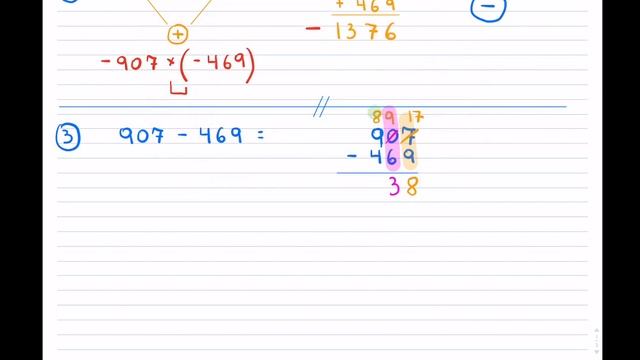 + 469
- 1376
+
-907 + (-469)
-
3 907 - 469 =
8 9 17
907
- 469
38